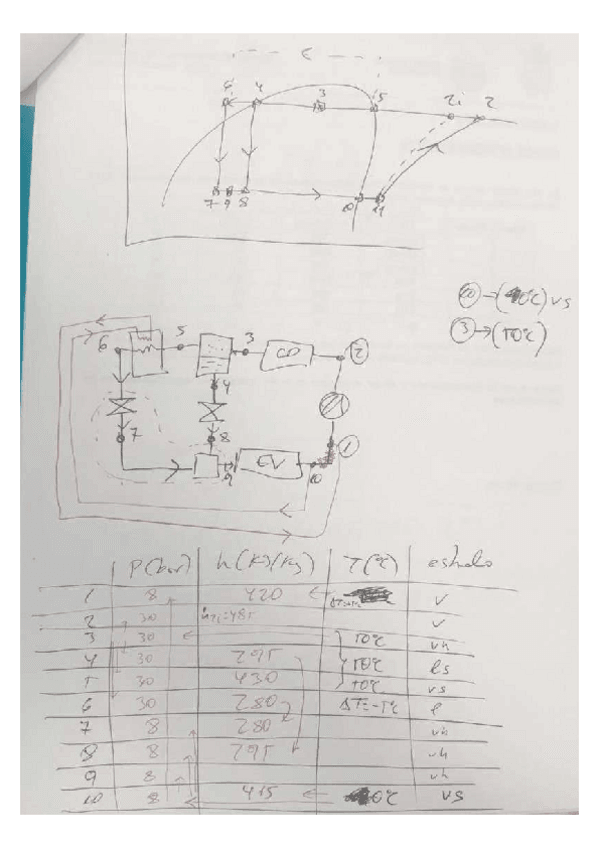 6 4 3 5 2i 2
7 9 8 10 1
10 → (0ºC) vs
3 → (50ºC)
6 5 3 CD 2
4
7 8 1
9 EV 10
P(bar) h(KJ/Kg) T(ºC) estado
1 8 420 v
2 30 h2i=485 v
3 30 50ºC vh
4 30 295 50ºC ls
5 30 430 50ºC vs
6 30 280 ΔT=-5ºC l
7 8 280 vh
8 8 295 vh
9 8 vh
10 8 415 0ºC vs